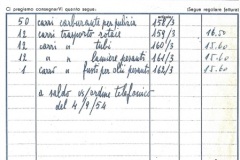 Ci pregiamo consegnarVi quanto segue:
(segue regolare fattura)
50 carri carburante per pulizia 158/3
12 carri trasporto rotaie 159/3 16.50
12 carri " tubi 160/3 15.60
12 " " lamiere pesanti 161/3 15.60
1 carri " fusto per olii pesanti 162/3
a saldo vs/ordine telefonico
del 4/9/54